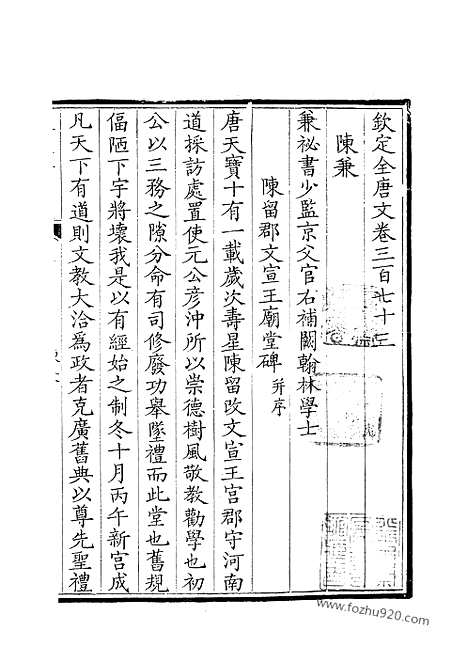 欽定全唐文卷三百七十三
陳兼
兼祕書少監京父官右補闕翰林學士
陳留郡文宣王廟堂碑并序
唐天寶十有一載歲次壽星陳留改文宣王宫郡守河南
道採訪處置使元公彥沖所以崇德樹風敬教勸學也初
公以三務之隙分命有司修廢功舉墜禮而此堂也舊規
偪陋下宇將壞我是以有經始之制冬十月丙午新宫成
凡天下有道則文教大洽爲政者克廣舊典以尊先聖禮
www.fozhu920.com